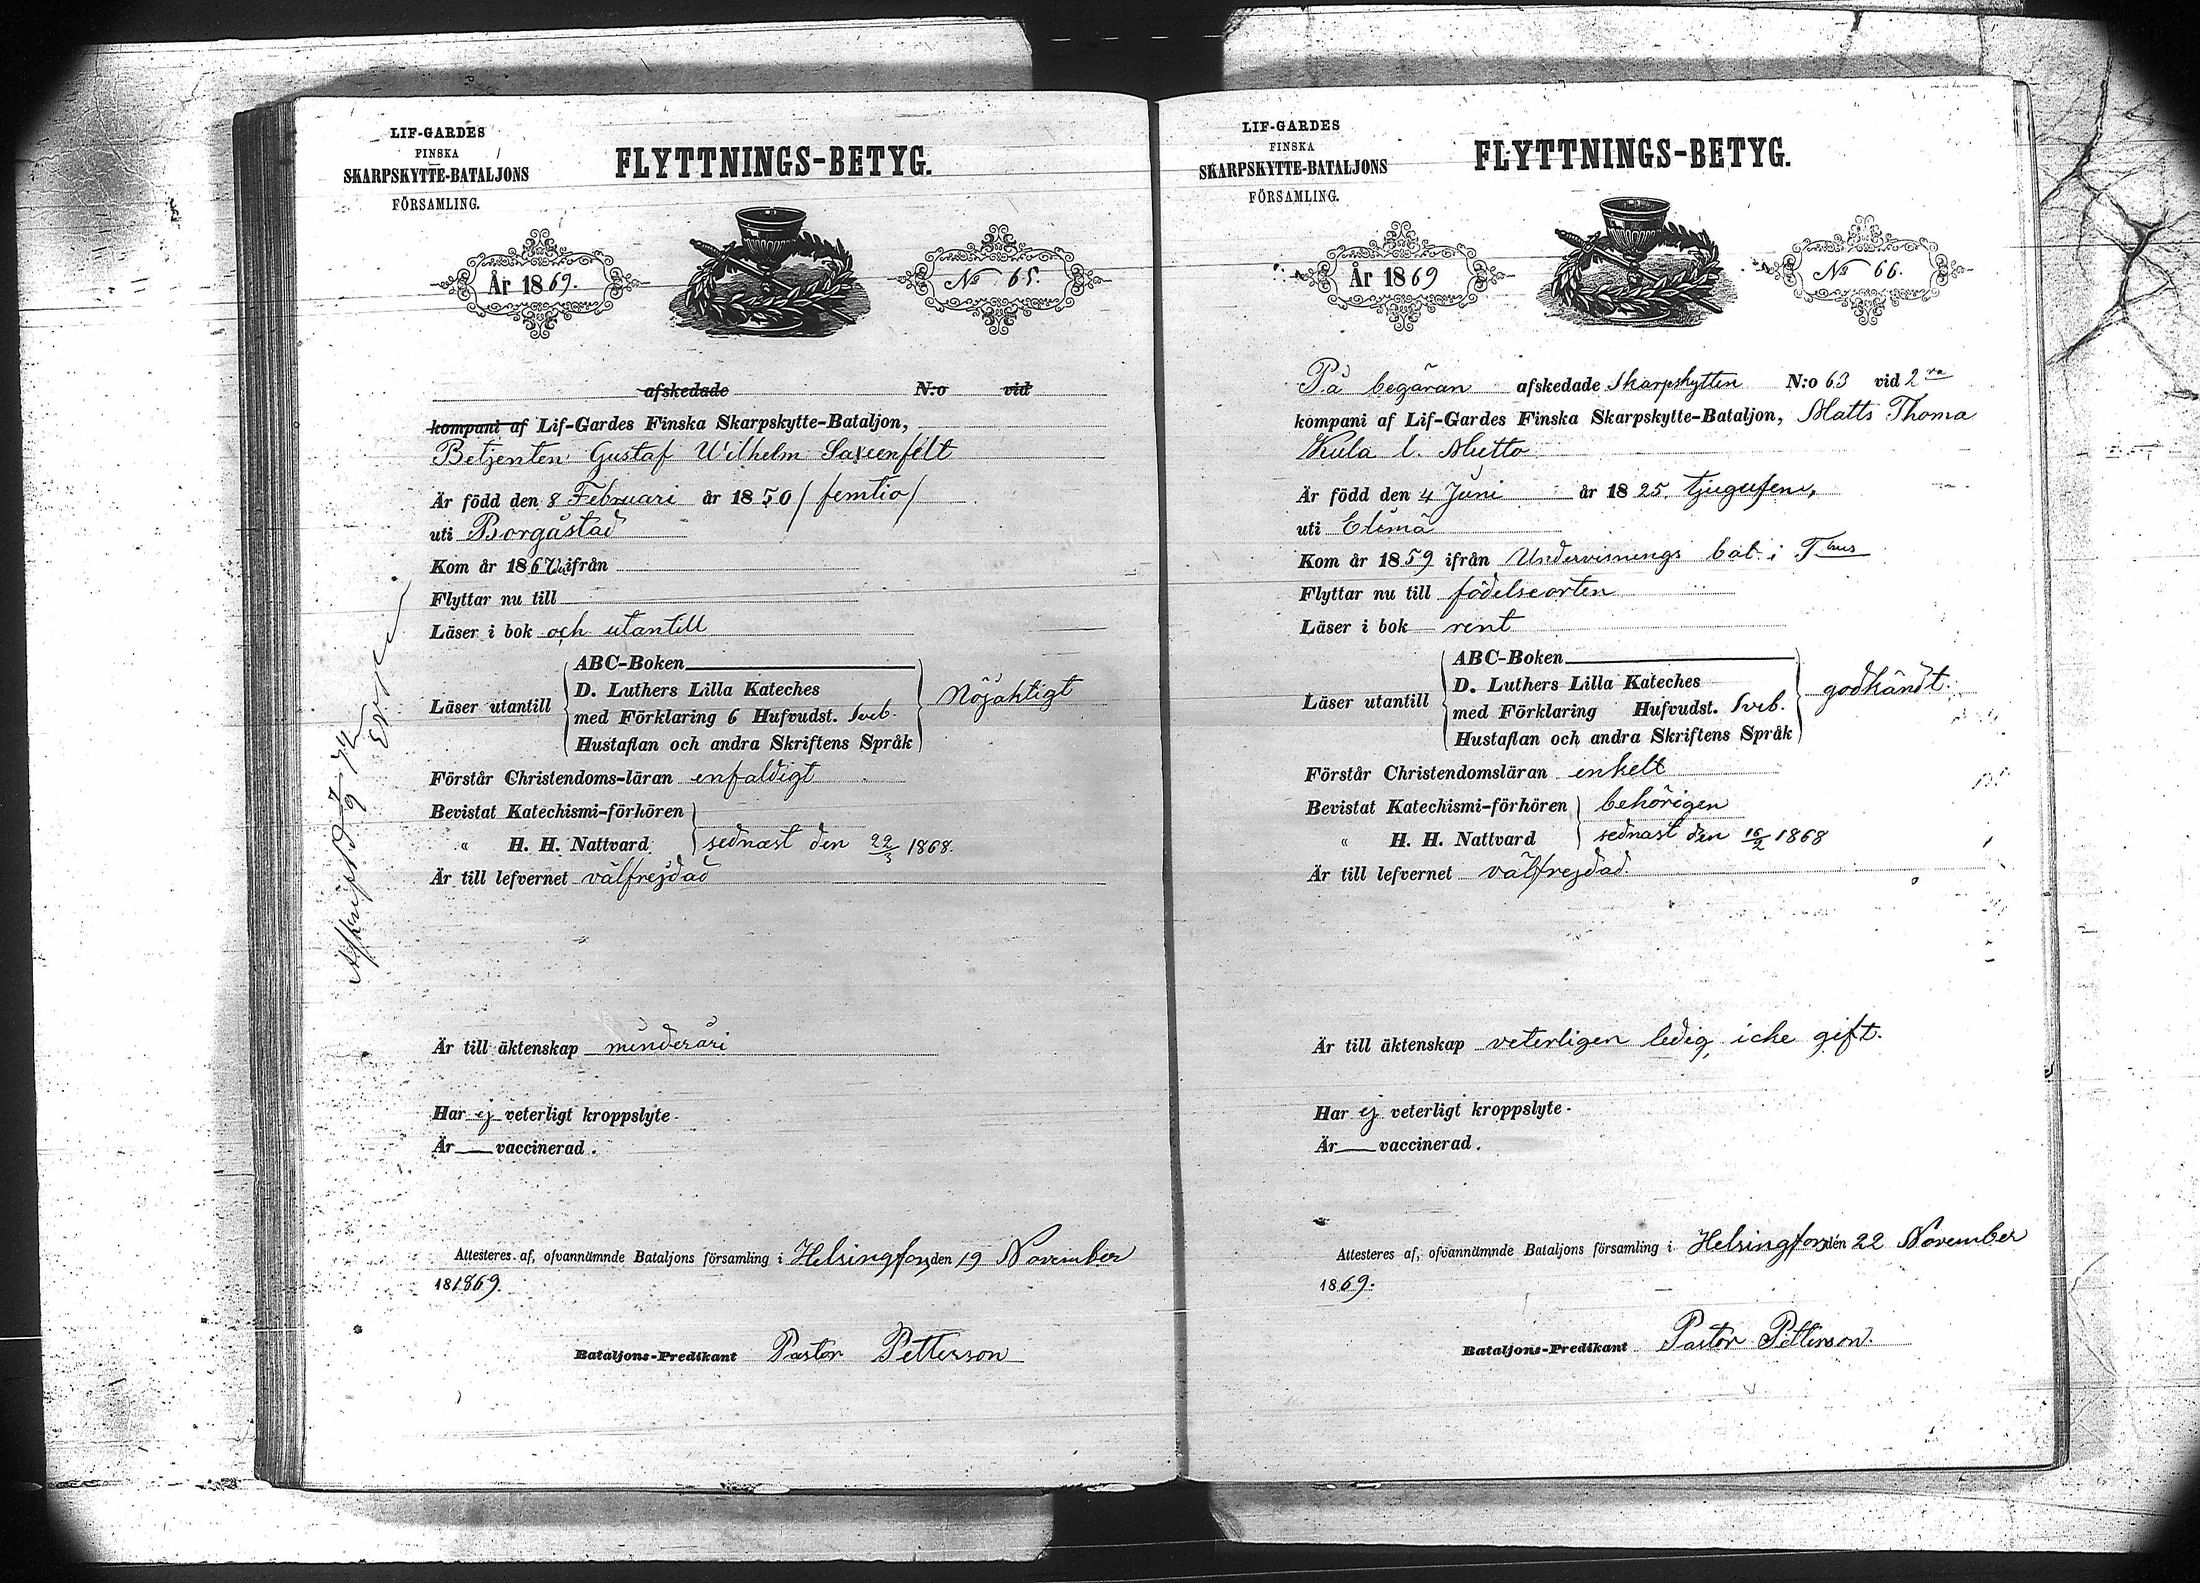 LIF-GARDES
FINSKA
SKARPSKYTTE-BATALJONS
FÖRSAMLING.
FLYTTNINGS-BETYG.
År 1869.
No 65.
afskedade N:o vid
kompani af Lif-Gardes Finska Skarpskytte-Bataljon,
Betjenten Gustaf Wilhelm
Är född den 8 Februari år 1850 / femtio /
uti Borgåstad
Kom år 1867 ifrån
Flyttar nu till
Läser i bok och utantill
Läser utantill
ABC-Boken
D. Luthers Lilla Kateches
med Förklaring 6 Hufvudst. Sveb.
Hustaflan och andra Skriftens Språk
Nöjaktigt
Förstår Christendoms-läran enfaldigt
Bevistat Katechismi-förhören
" H. H. Nattvard sednast den 22/3 1868.
Är till lefvernet välfrejdad
Är till äktenskap minderåri
Har ej veterligt kroppslyte.
Är vaccinerad.
Attesteras af, ofvannämnde Bataljons församling i Helsingfors den 19 November
181869.
Bataljons-Predikant Pastor Petterson
Afskrift 7/9 72
LIF-GARDES
FINSKA
SKARPSKYTTE-BATALJONS
FÖRSAMLING.
FLYTTNINGS-BETYG.
År 1869
No 66.
På begäran afskedade Skarpskytten N:o 63 vid 2ra
kompani af Lif-Gardes Finska Skarpskytte-Bataljon, Matts Thoma
Kula l. Mutto
Är född den 4 Juni år 1825 tjugufem,
uti Elimä
Kom år 1859 ifrån Undervisnings bat. i Thus
Flyttar nu till födelseorten
Läser i bok rent
Läser utantill
ABC-Boken
D. Luthers Lilla Kateches
med Förklaring Hufvudst. Sveb.
Hustaflan och andra Skriftens Språk
godkändt.
Förstår Christendomsläran enkelt
Bevistat Katechismi-förhören behörigen
" H. H. Nattvard sednast den 16/2 1868
Är till lefvernet välfrejdad.
Är till äktenskap veterligen ledig, icke gift.
Har ej veterligt kroppslyte.
Är vaccinerad.
Attesteres af, ofvannämnde Bataljons församling i Helsingfors den 22 November
1869.
Bataljons-Predikant Pastor Petterson.